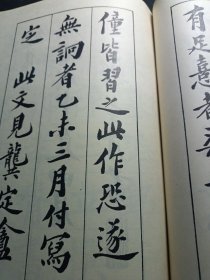 有足憙者
僮皆習之此作恐遂
無詗者乙未三月付寫
定 此文見龔定盦